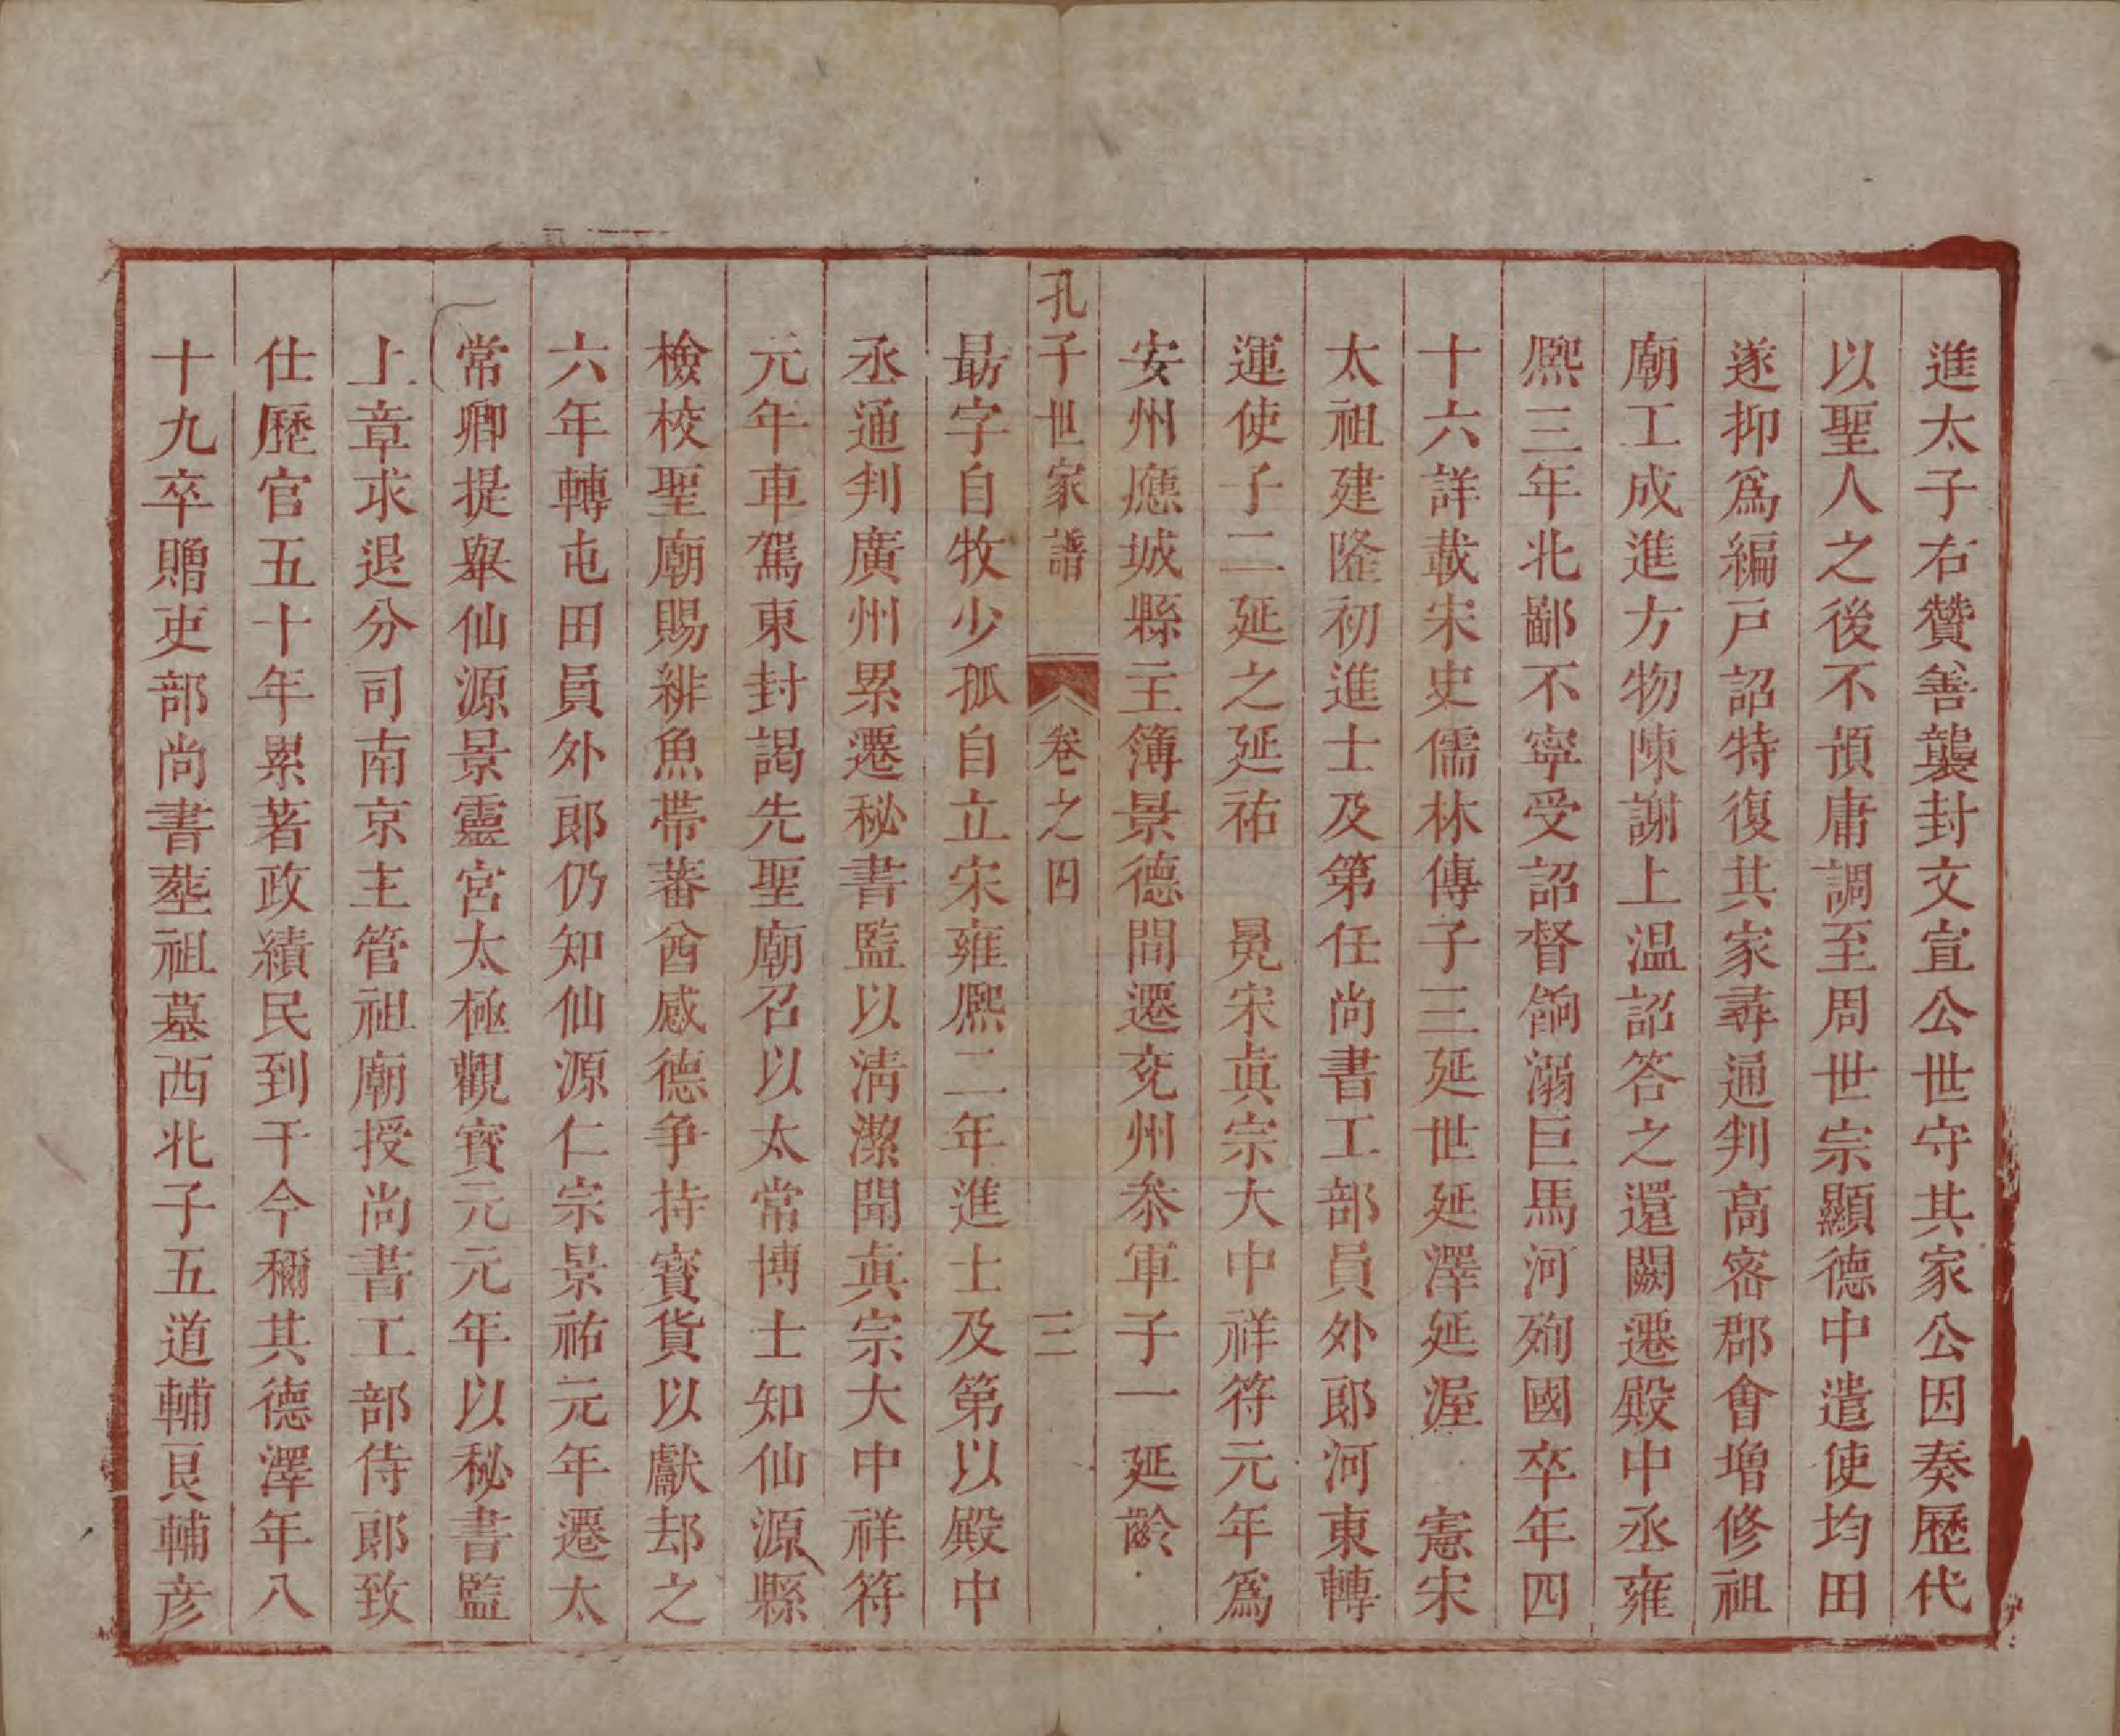 進太子右贊善襲封文宣公世守其家公因奏歷代
以聖人之後不預庸調至周世宗顯德中遣使均田
遂抑爲編戸詔特復其家尋通判高密郡會增修祖
廟工成進方物陳謝上温詔答之還闕遷殿中丞雍
熙三年北鄙不寧受詔督餉溺巨馬河殉國卒年四
十六詳載宋史儒林傳子三延世延澤延渥　憲宋
太祖建隆初進士及第任尚書工部員外郎河東轉
運使子二延之延祐　晃宋眞宗大中祥符元年爲
安州應城縣主簿景德間遷兖州叅軍子一延齡
孔子世家譜　卷之四　三
勗字自牧少孤自立宋雍熙二年進士及第以殿中
丞通判廣州累遷秘書監以淸潔聞眞宗大中祥符
元年車駕東封謁先聖廟召以太常博士知仙源縣
檢校聖廟賜緋魚帶蕃酋感德争持寳貨以獻却之
六年轉屯田員外郎仍知仙源仁宗景祐元年遷太
常卿提舉仙源景靈宮太極觀寳元元年以秘書監
上章求退分司南京主管祖廟授尚書工部侍郎致
仕歷官五十年累著政績民到于今稱其德澤年八
十九卒贈吏部尚書塟祖墓西北子五道輔良輔彦